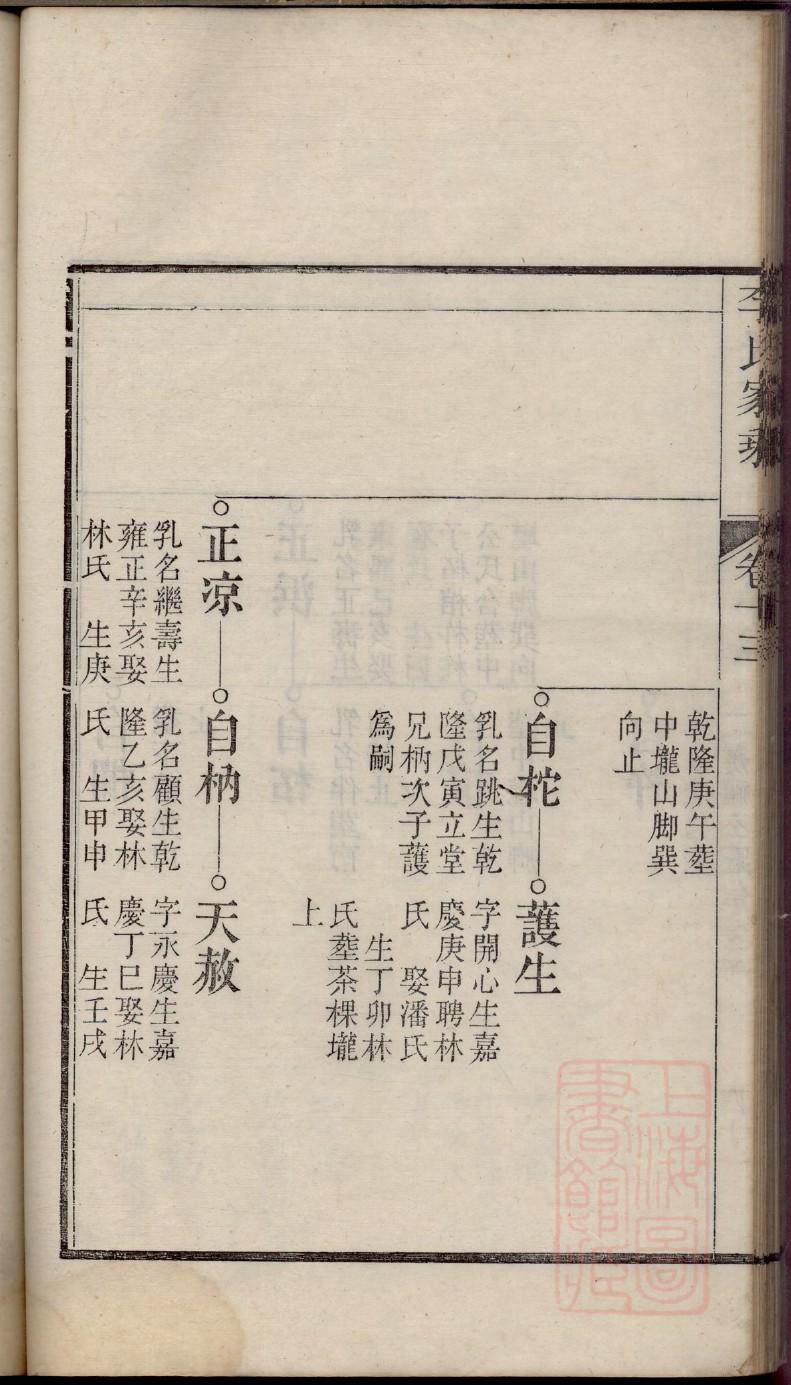 李氏家乘
卷十三
乾隆庚午塟
中壠山脚巽
向止
自柁
乳名跳生乾
隆戊寅立堂
兄柄次子護
為嗣
護生
字開心生嘉
慶庚申聘林
氏 娶潘氏
生丁卯林
氏塟茶棵壠
上
正凉
乳名繼壽生
雍正辛亥娶
林氏 生庚
自柄
乳名顧生乾
隆乙亥娶林
氏 生甲申
天赦
字永慶生嘉
慶丁巳娶林
氏 生壬戌
上海圖
書館藏